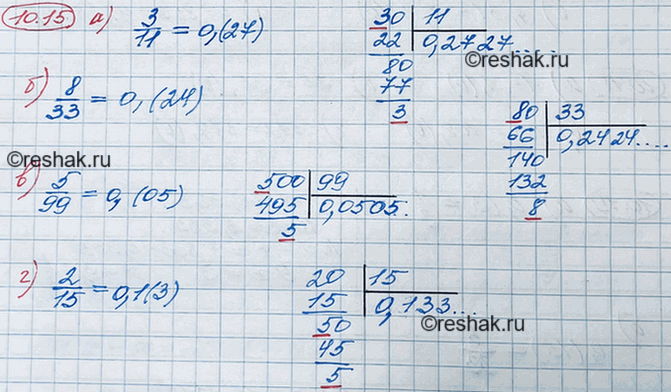 10.15 а) 3/11 = 0,(27)
30 | 11
22 | 0,2727...
80
77
3
©reshak.ru
б) 8/33 = 0,(24)
80 | 33
66 | 0,2424....
140
132
8
©reshak.ru
в) 5/99 = 0,(05)
500 | 99
495 | 0,0505.
5
г) 2/15 = 0,1(3)
20 | 15
15 | 0,133...
50
45
5
©reshak.ru